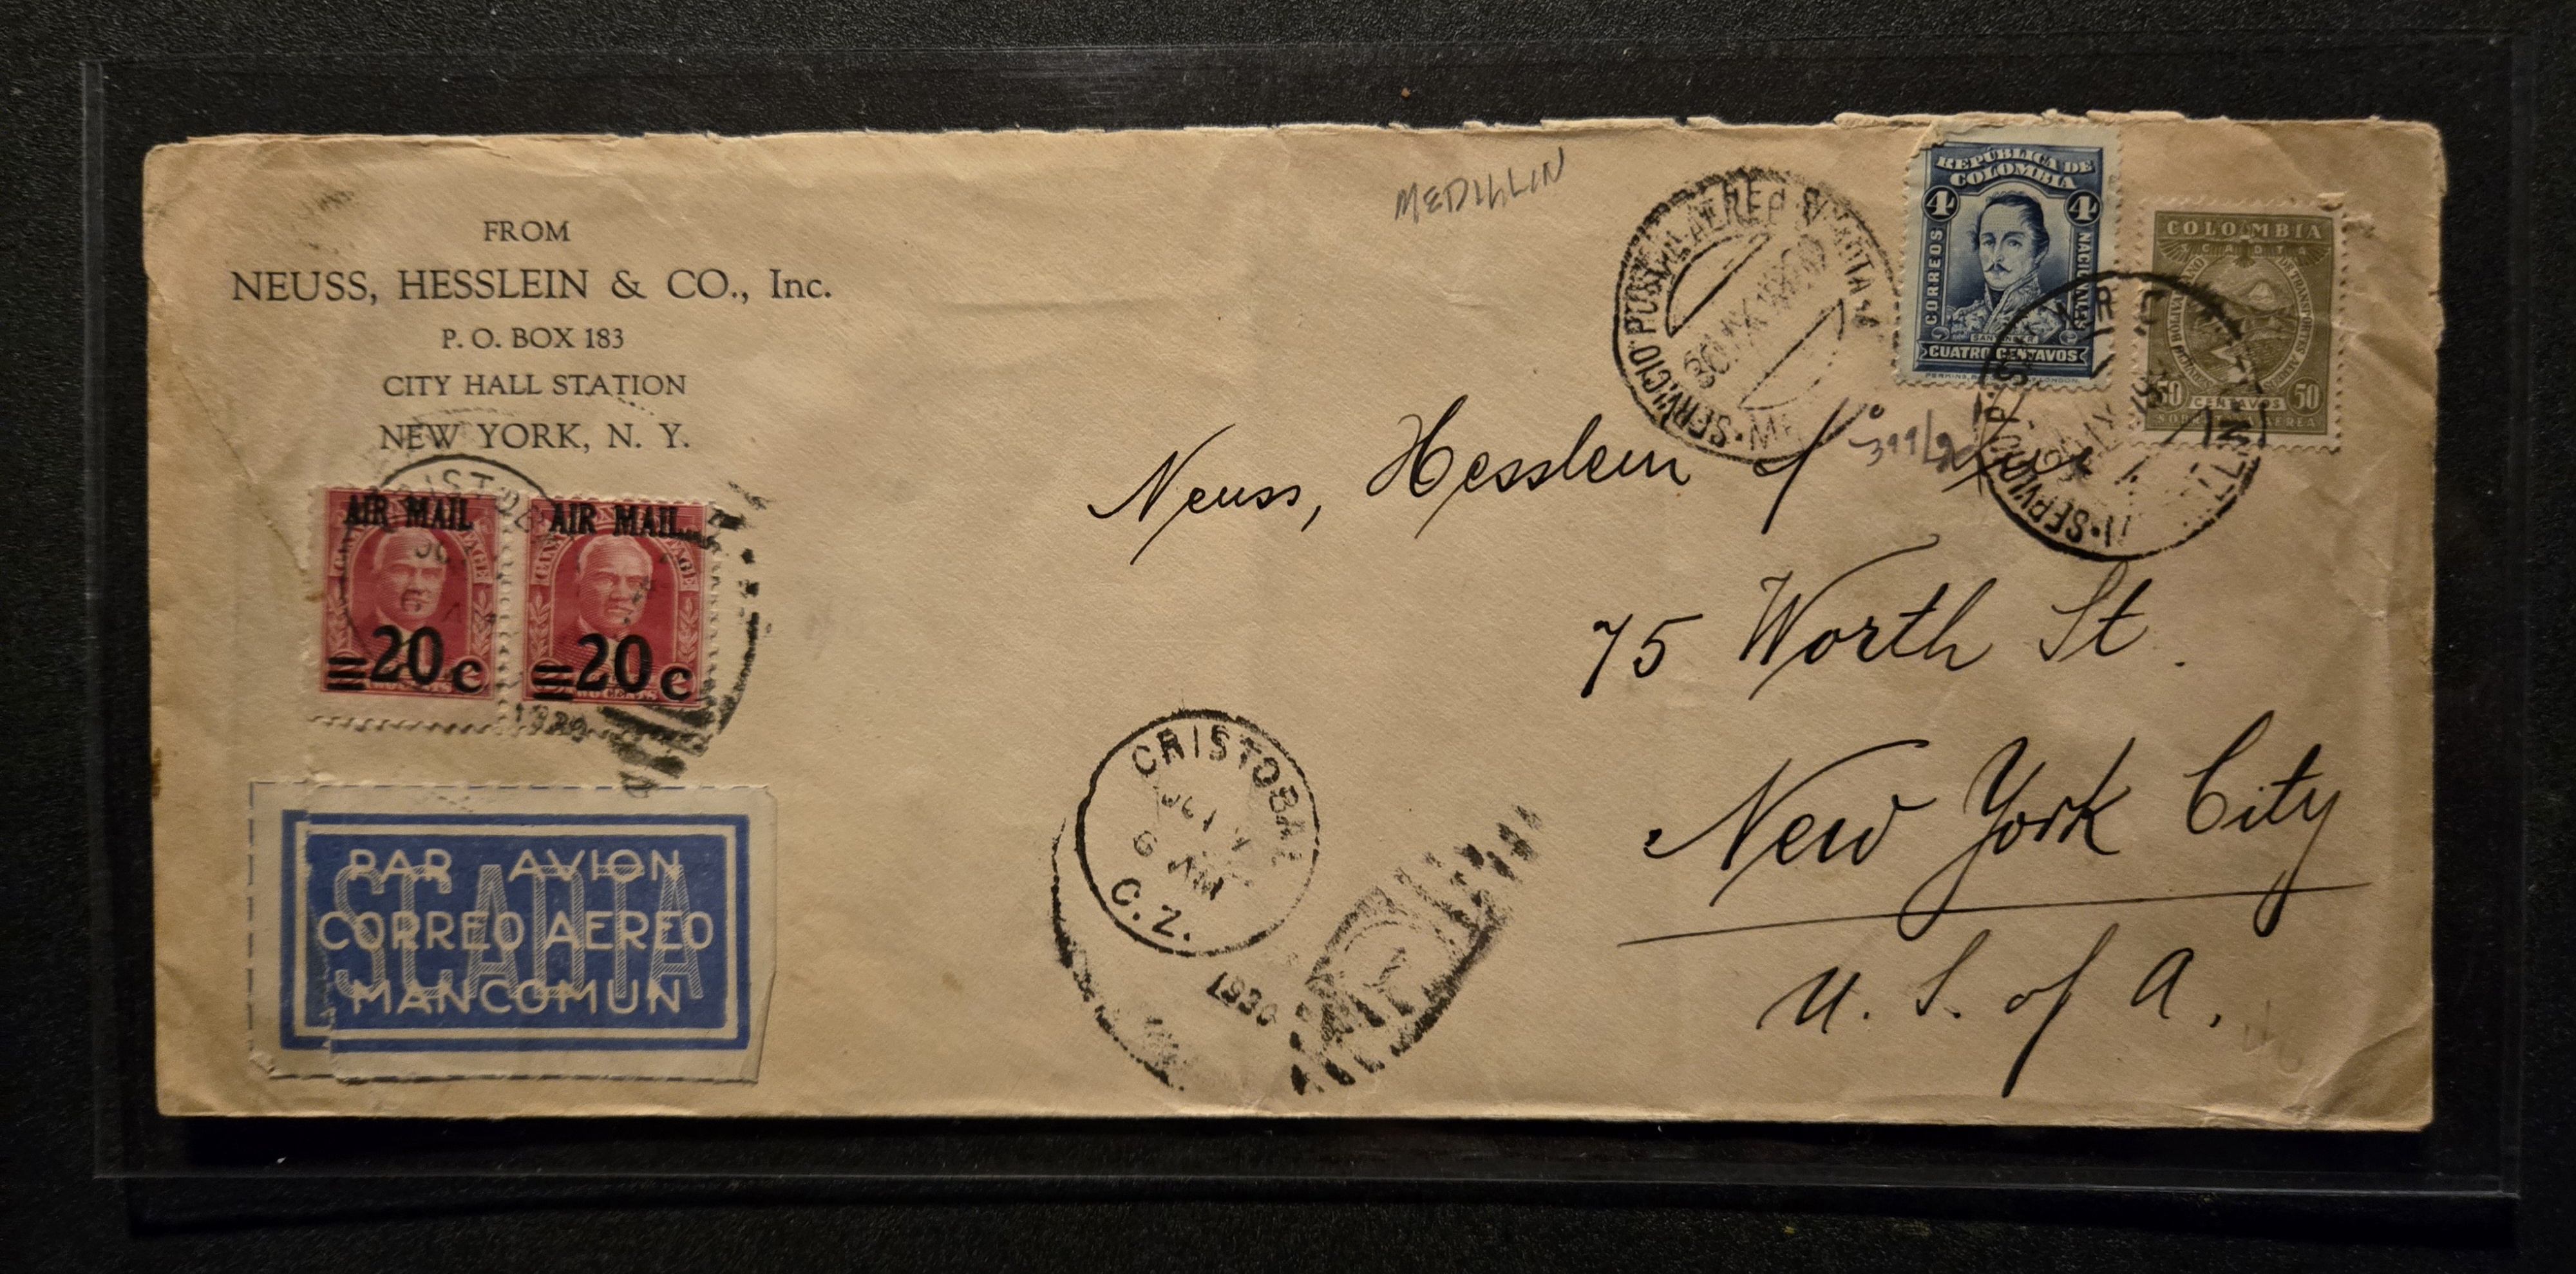 FROM
NEUSS, HESSLEIN & CO., Inc.
P. O. BOX 183
CITY HALL STATION
NEW YORK, N. Y.
MEDILLIN
SERVICIO POSTAL AEREO
REPÚBLICA DE
COLOMBIA
4 4
CORREOS
NACIONALES
SANTANDER
CUATRO CENTAVOS
COLOMBIA
SCADTA
50 CENTAVOS 50
SERVICIO
Neuss, Hesslein &
75 Worth St.
New York City
U. S. of A.
AIR MAIL
CANAL POSTAGE
20 c
AIR MAIL
20 c
TWO CENTS
1929
CRISTOBAL
6 AM
C. Z.
1930
SCADTA
PAR AVION
CORREO AEREO
MANCOMUN